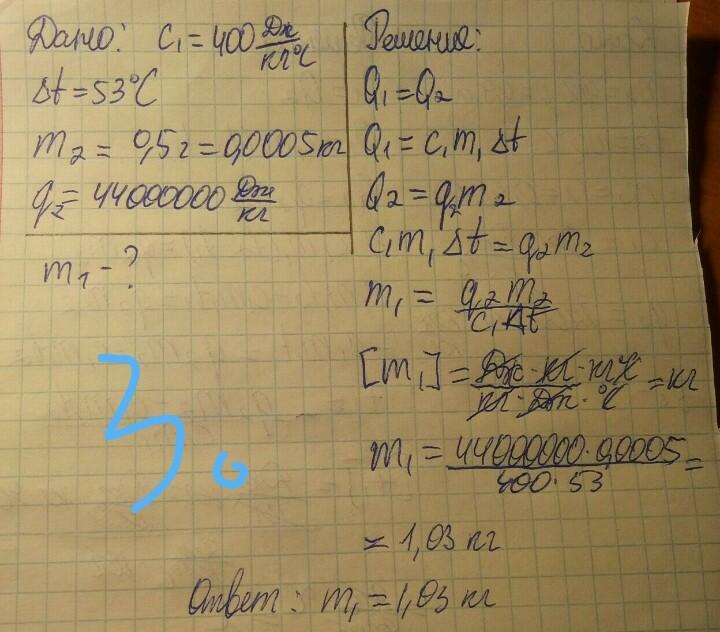 Дано: c₁ = 400 Дж/кг°С
Δt = 53°С
m₂ = 0,5 г = 0,0005 кг
q₂ = 44000000 Дж/кг
m₁ - ?
3.
Решение:
Q₁ = Q₂
Q₁ = c₁m₁Δt
Q₂ = q₂m₂
c₁m₁Δt = q₂m₂
m₁ = q₂m₂/c₁Δt
[m₁] = Дж·кг·кг°С/кг·Дж·°С = кг
m₁ = 44000000·0,0005/400·53 =
≈ 1,03 кг
Ответ: m₁ = 1,03 кг